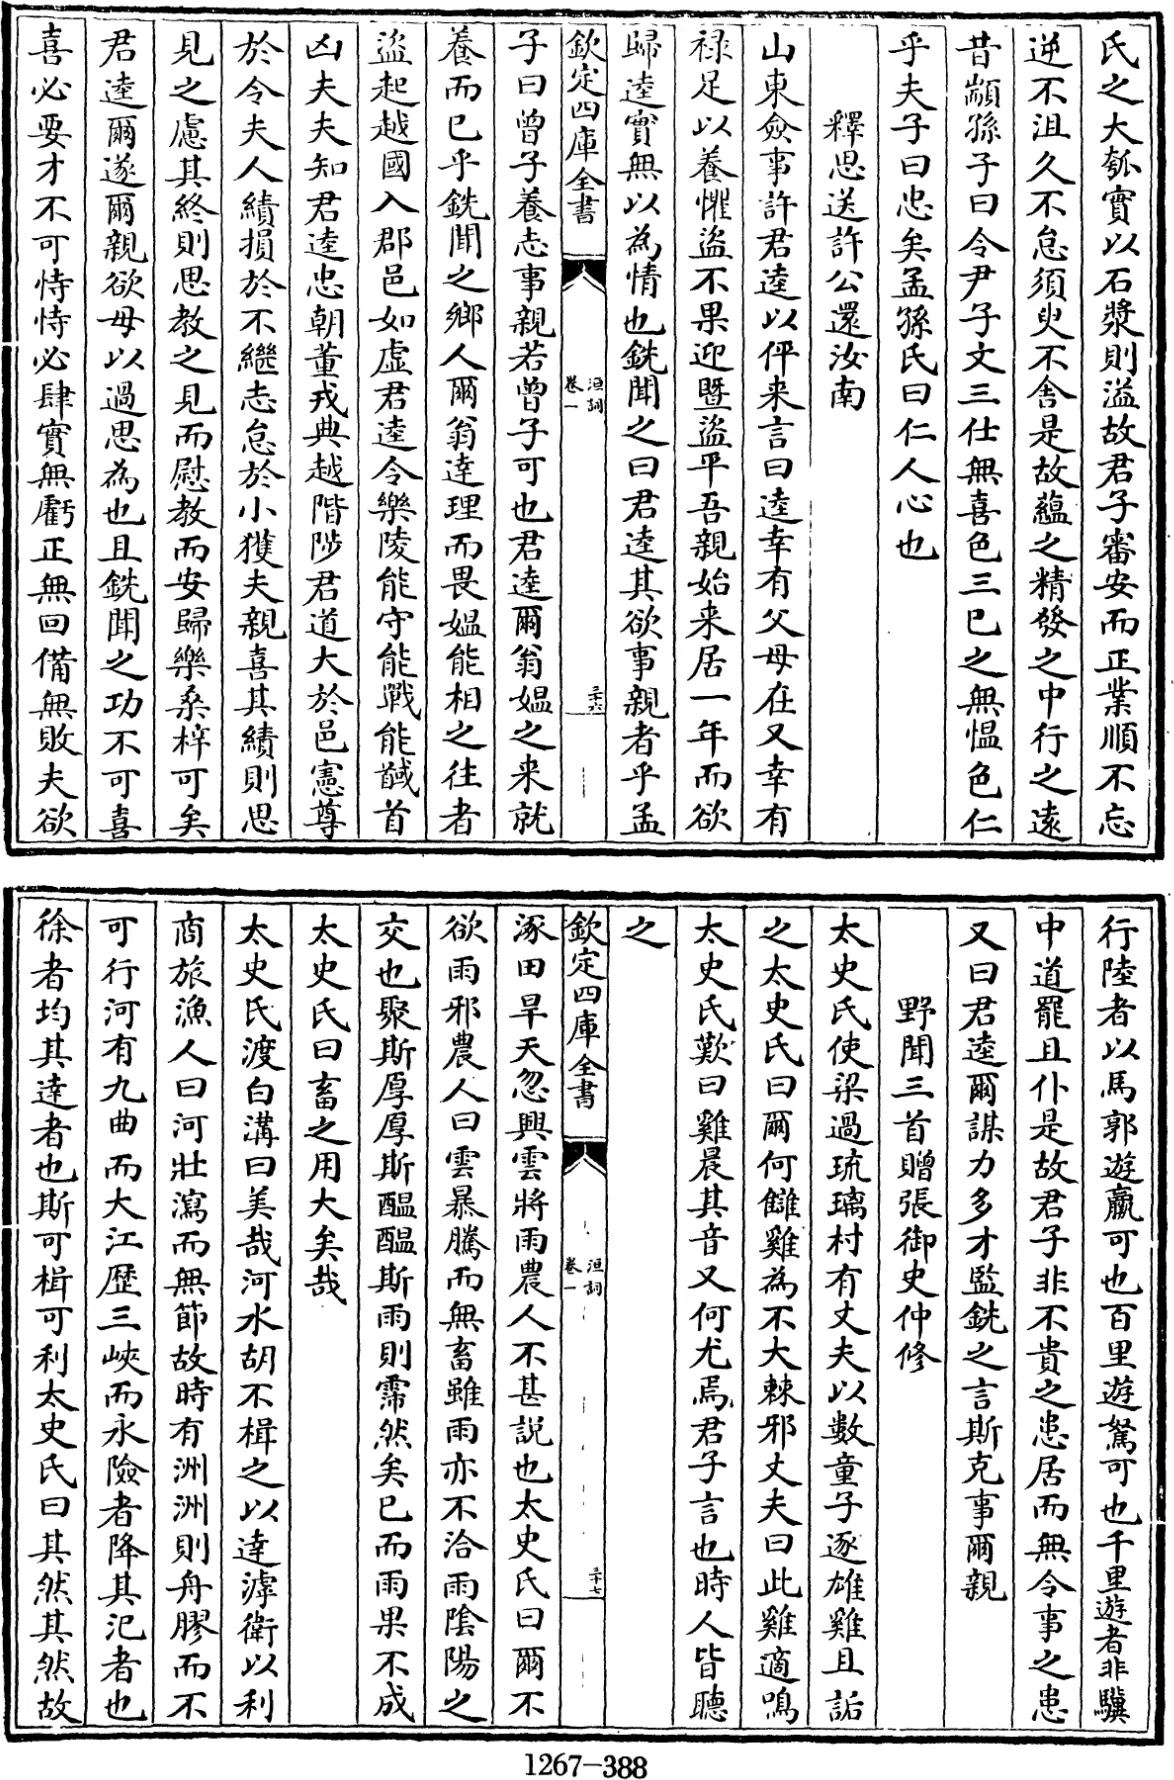 氏之大瓠實以石漿則溢故君子審安而正業順不忘
逆不沮久不怠須臾不舍是故蘊之精發之中行之遠
昔顓孫子曰令尹子文三仕無喜色三已之無愠色仁
乎夫子曰忠矣孟孫氏曰仁人心也
釋思送許公還汝南
山東僉事許君逵以伻来言曰逵幸有父母在又幸有
禄足以養懼盜不果迎暨盜平吾親始来居一年而欲
歸逵實無以為情也銑聞之曰君逵其欲事親者乎孟
欽定四庫全書
洹詞
卷一
三十六
子曰曾子養志事親若曾子可也君逵爾翁媼之来就
養而已乎銑聞之鄉人爾翁達理而畏媼能相之往者
盜起越國入郡邑如虛君逵令樂陵能守能戰能馘首
凶夫夫知君逵忠朝董戎典越階陟君道大於邑憲尊
於令夫人績損於不繼志怠於小獲夫親喜其績則思
見之慮其終則思教之見而慰教而安歸樂桑梓可矣
君逵爾遂爾親欲毋以過思為也且銑聞之功不可喜
喜必要才不可恃恃必肆實無虧正無回備無敗夫欲
行陸者以馬郭遊羸可也百里遊駑可也千里遊者非驥
中道罷且仆是故君子非不貴之患居而無令事之患
又曰君逵爾謀力多才監銑之言斯克事爾親
野聞三首贈張御史仲修
太史氏使梁過琉璃村有丈夫以數童子逐雄雞且詬
之太史氏曰爾何讎雞為不大棘邪丈夫曰此雞適鳴
太史氏歎曰雞晨其音又何尤焉君子言也時人皆聽
之
欽定四庫全書
洹詞
卷一
三十七
涿田旱天忽興雲將雨農人不甚説也太史氏曰爾不
欲雨邪農人曰雲暴騰而無畜雖雨亦不洽雨陰陽之
交也聚斯厚厚斯醖醖斯雨則霈然矣已而雨果不成
太史氏曰畜之用大矣哉
太史氏渡白溝曰美哉河水胡不楫之以達滹衛以利
商旅漁人曰河壯瀉而無節故時有洲洲則舟膠而不
可行河有九曲而大江歴三峽而永險者降其汜者也
徐者均其達者也斯可楫可利太史氏曰其然其然故
1267-388